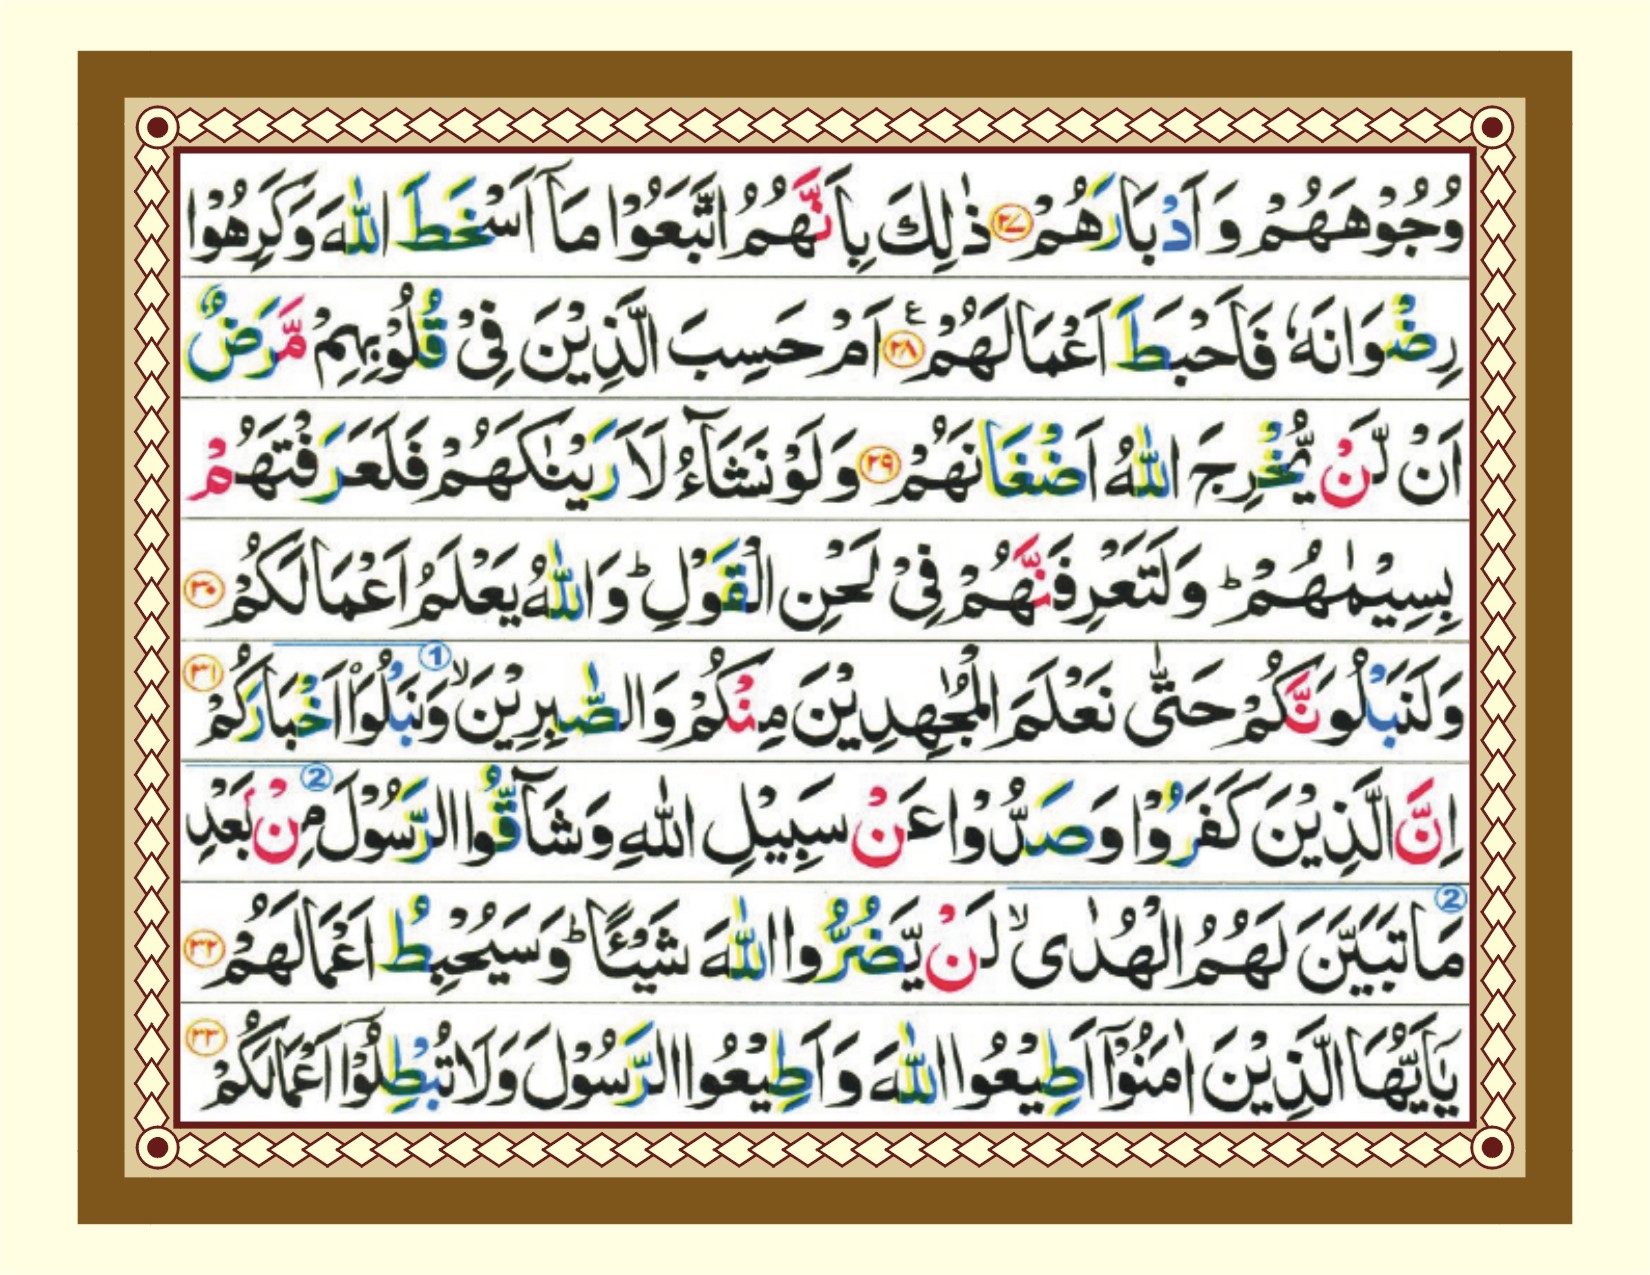 وُجُوْهَهُمْ وَ اَدْبَارَهُمْ ﴿۲۷﴾ ذٰلِكَ بِاَنَّهُمُ اتَّبَعُوْا مَاۤ اَسْخَطَ اللّٰهَ وَكَرِهُوْا
رِضْوَانَهٗ فَاَحْبَطَ اَعْمَالَهُمْ ﴿۲۸﴾ ع اَمْ حَسِبَ الَّذِيْنَ فِىْ قُلُوْبِهِمْ مَّرَضٌ
اَنْ لَّنْ يُّخْرِجَ اللّٰهُ اَضْغَانَهُمْ ﴿۲۹﴾ وَلَوْ نَشَآءُ لَاَرَيْنٰكَهُمْ فَلَعَرَفْتَهُمْ
بِسِيْمٰهُمْ ؕ وَلَتَعْرِفَنَّهُمْ فِىْ لَحْنِ الْقَوْلِ ؕ وَاللّٰهُ يَعْلَمُ اَعْمَالَكُمْ ﴿۳۰﴾
وَلَنَبْلُوَنَّكُمْ حَتّٰى نَعْلَمَ الْمُجٰهِدِيْنَ مِنْكُمْ وَالصّٰبِرِيْنَ ۙ وَنَبْلُوَا۟ اَخْبَارَكُمْ ﴿۳۱﴾ ①
اِنَّ الَّذِيْنَ كَفَرُوْا وَصَدُّوْا عَنْ سَبِيْلِ اللّٰهِ وَشَآقُّوا الرَّسُوْلَ مِنْۢ بَعْدِ ②
مَا تَبَيَّنَ لَهُمُ الْهُدٰى ۙ لَنْ يَّضُرُّوا اللّٰهَ شَيْـًٔا ؕ وَسَيُحْبِطُ اَعْمَالَهُمْ ﴿۳۲﴾ ②
يٰۤاَيُّهَا الَّذِيْنَ اٰمَنُوْۤا اَطِيْعُوا اللّٰهَ وَ اَطِيْعُوا الرَّسُوْلَ وَلَا تُبْطِلُوْۤا اَعْمَالَكُمْ ﴿۳۳﴾